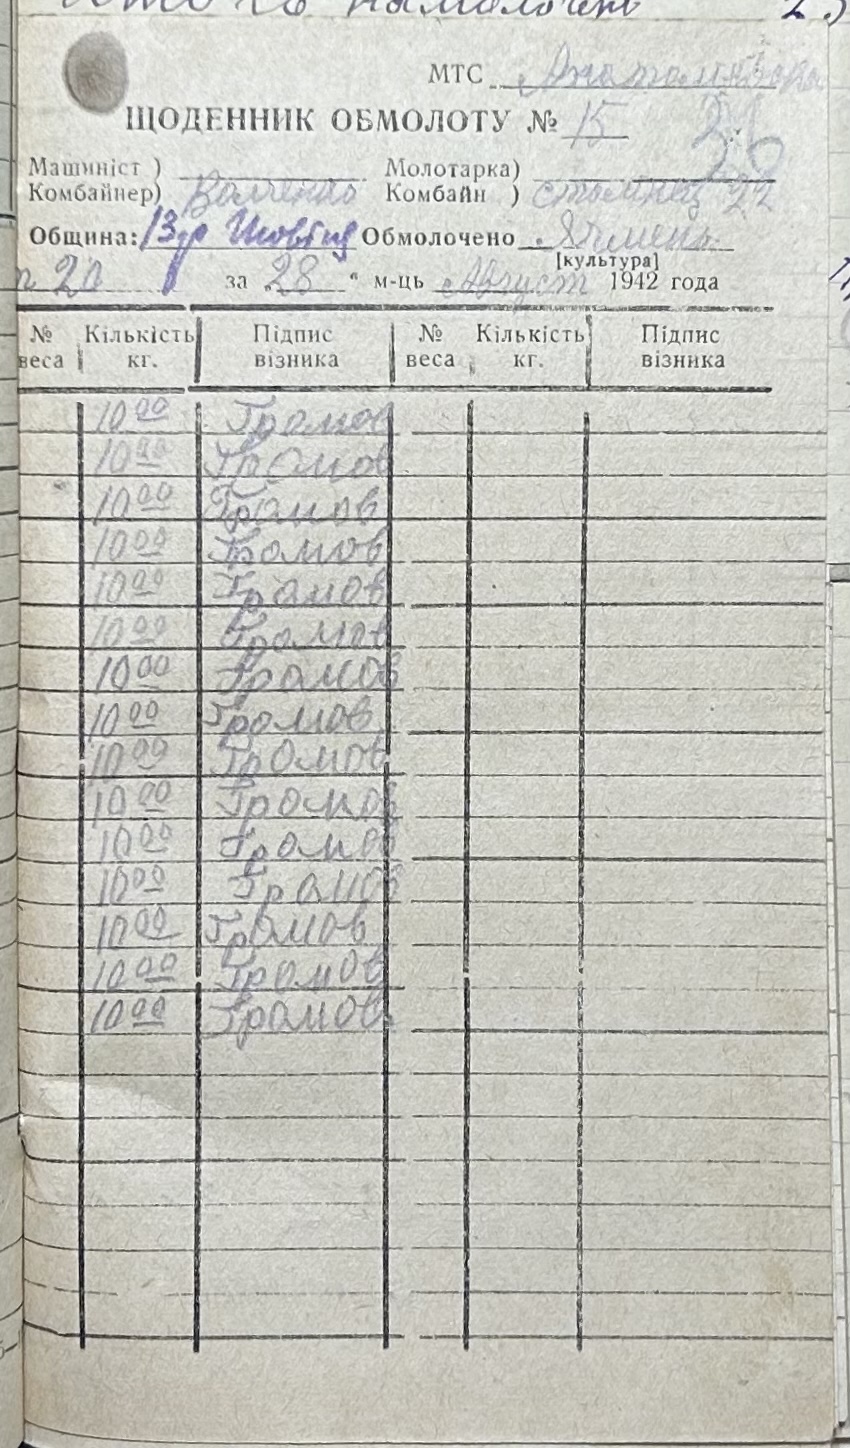 намолочень 23
МТС
ЩОДЕННИК ОБМОЛОТУ № 15 26
Машиніст ) Молотарка)
Комбайнер) Комбайн ) сталінец 22
Община: 13 р Жовтня Обмолочено Ячмень
[культура]
20 за „28“ м-ць Август 1942 года
№ веса Кількість кг. Підпис візника № веса Кількість кг. Підпис візника
10 00 Громов
10 00 Громов
10 00 Громов
10 00 Громов
10 00 Громов
10 00 Громов
10 00 Громов
10 00 Громов
10 00 Громов
10 00 Громов
10 00 Громов
10 00 Громов
10 00 Громов
10 00 Громов
10 00 Громов